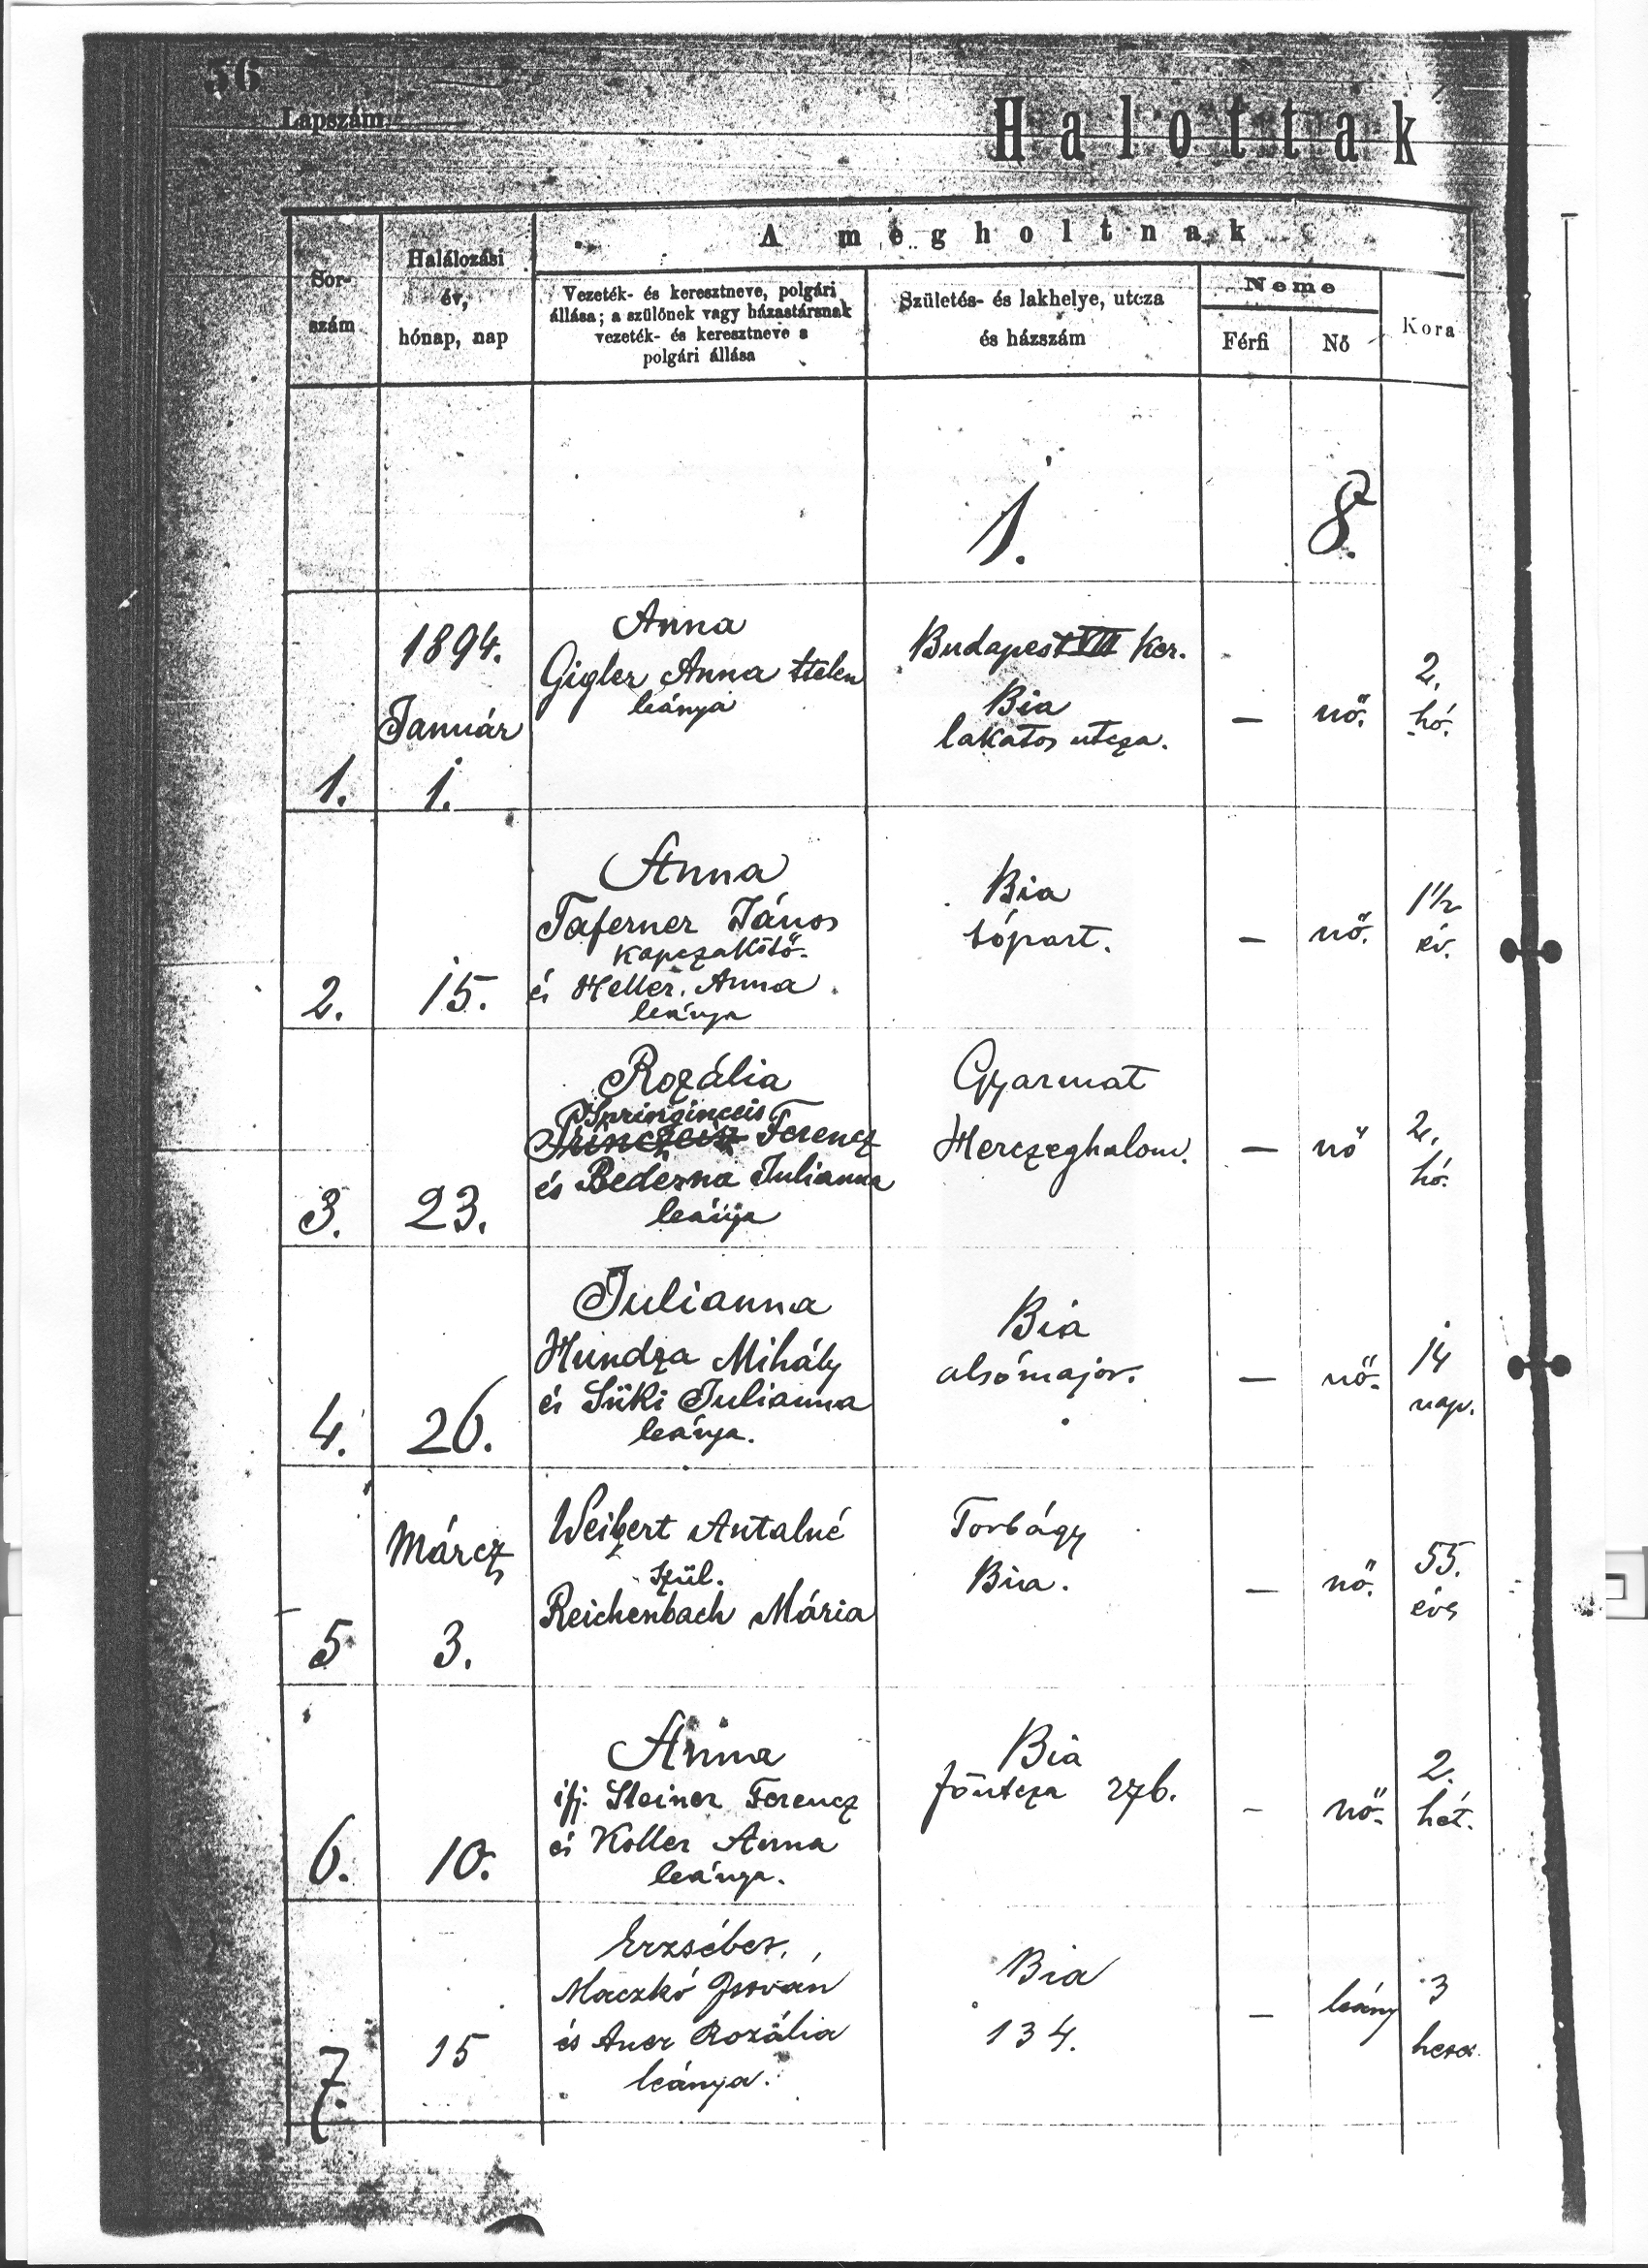 56
Lapszám
Halottak
A megholtnak
Sor-
szám
Halálozási
év,
hónap, nap
Vezeték- és keresztneve, polgári
állása; a szülőnek vagy házastársnak
vezeték- és keresztneve s
polgári állása
Születés- és lakhelye, utcza
és házszám
Neme
Férfi
Nő
Kora
1. 8.
1894.
Január
1. 1.
Anna
Gigler Anna
leánya
Budapest VIII Ker.
Bia
lakatos utcza.
— nő.
2.
hó.
2. 15.
Anna
Taferner János
kapczakötő.
és Heller Anna
leánya
Bia
tópart.
— nő.
1 1/2
év.
3. 23.
Rozália
Ferencz
és Bederna Julianna
leánya
Gyarmat
Herczeghalom.
— nő
2.
hó.
4. 26.
Julianna
Hundza Mihály
és Süki Julianna
leánya.
Bia
alsómajor.
— nő.
14
nap.
Márcz
5 3.
Weibert Antalné
szül.
Reichenbach Mária
Torbágy
Bia.
— nő.
55.
éves
6. 10.
Anna
ifj. Steiner Ferencz
és Koller Anna
leánya.
Bia
főutcza 276.
– nő.
2.
hét.
7. 15
Erzsébet.
Maczkó István
és Auer Rozália
leánya.
Bia
134.
– leány
3
hetes